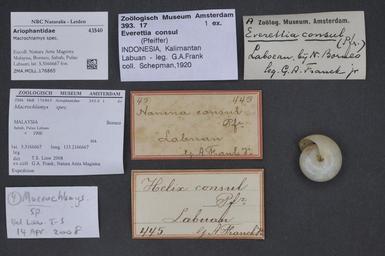 NBC Naturalis - Leiden
Ariophantidae 43540
Macrochlamys spec.
Excoll. Naturis Arts Magistra
Malaysia, Borneo, Sabah, Pulau
Labuan; lat. 5.3166667
ZMA.MOLL.176865
Zoölogisch Museum Amsterdam
393. 17 1 ex.
Everettia consul
(Pfeiffer)
INDONESIA, Kalimantan
Labuan - leg. G.A.Frank
coll. Schepman,1920
A
Zoölog. Museum, Amsterdam.
Everettia consul
(Pfr.)
Laboean, bij N. Borneo
leg. G. A. Franck jr
ZOOLOGISCH MUSEUM AMSTERDAM
ZMA Moll 176865 Ariophantidae
Macrochlamys spec.
MALAYSIA Borneo
Sabah, Pulau Labuan
lat 5.3166667 long 115.2166667
det T.S. Liew 2008
leg G.A. Frank, Natura Artis Magistra
Expedition
45 445
Nanina consul
Pfr.
Labuan
Macrochlamys
sp.
Det Liew. T-S
14 Apr. 2008
Helix consul
Pfr.
Labuan
445 lg A Franck Jr.